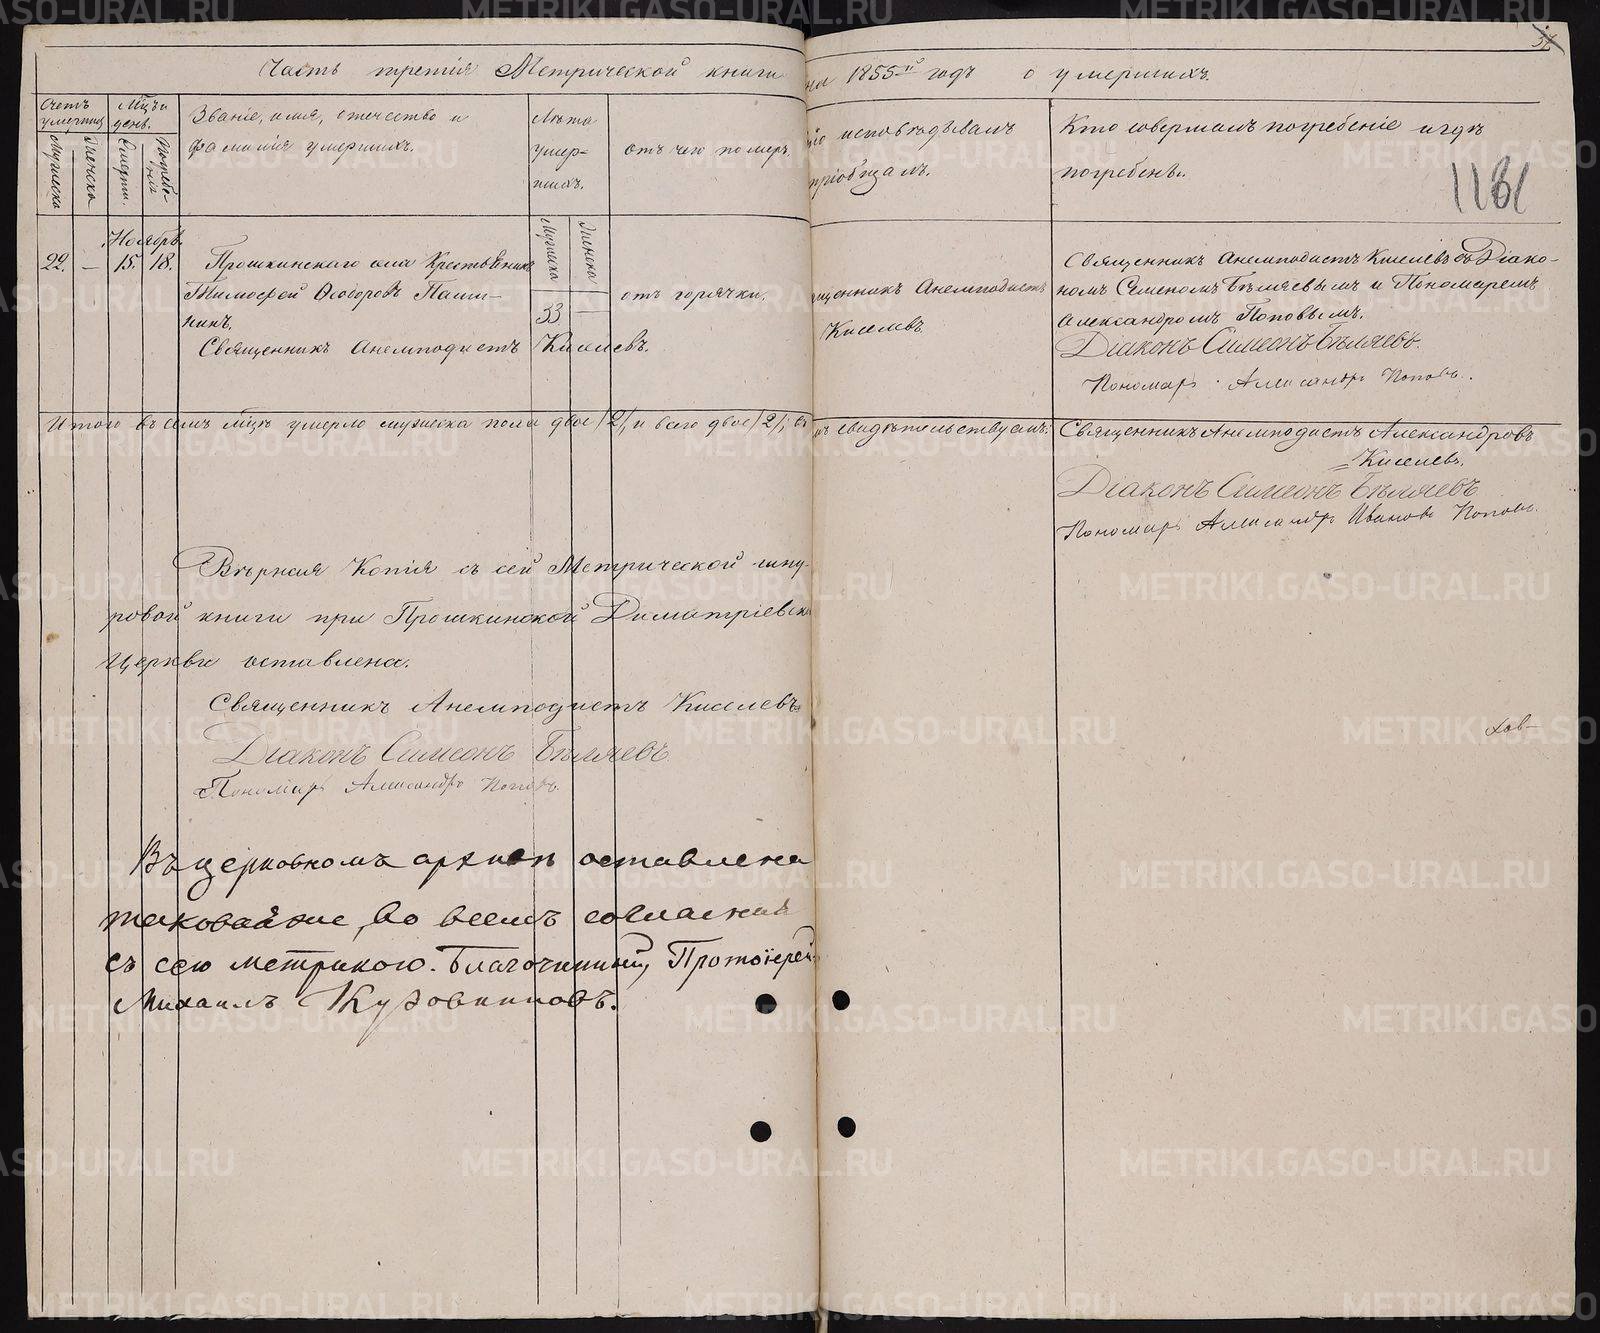 Часть третія Метрической книги на 1855й годъ о умершихъ.
Счетъ умершихъ
Мужеска
Женска
Мцъ и день.
Смерти.
Погребенія
Званіе, имя, отчество и
фамилія умершихъ.
Лѣта
умер-
шихъ.
Мужеска
Женска
отъ чего померъ.
исповѣдывалъ
пріобщалъ.
Кто совершалъ погребеніе и гдѣ
погребенъ.
Ноябрь.
22. — 15. 18.
Прошкинскаго села Крестьянинъ
Тимофей Ѳеодоровъ
33 —
отъ горячки.
Священникъ Анемподистъ Киселевъ.
Священникъ Анемподистъ
Киселевъ
Священникъ Анемподистъ Киселевъ съ Діако-
номъ Симеономъ Бѣляевымъ и Пономаремъ
Александромъ Поповымъ.
Діаконъ Симеонъ Бѣляевъ.
Пономарь Александръ Поповъ.
Итого въ семъ мцѣ умерло мужеска пола двое /2/, и всего двое /2/, въ чемъ свидѣтельствуемъ:
Священникъ Анемподистъ Александровъ
Киселевъ.
Діаконъ Симеонъ Бѣляевъ
Пономарь Александръ Ивановъ Поповъ.
Вѣрная Копія съ сей Метрической шну-
ровой книги при Прошкинской Димитріевской
Церкви оставлена.
Священникъ Анемподистъ Киселевъ
Діаконъ Симеонъ Бѣляевъ
Пономарь Александръ Поповъ.
хов-
Въ церковномъ архивѣ оставлена
таковая же, во всемъ согласная
съ сею метрикою. Благочинный, Протоіерей
Михаилъ Кудовниковъ.
METRIKI.GASO-URAL.RU